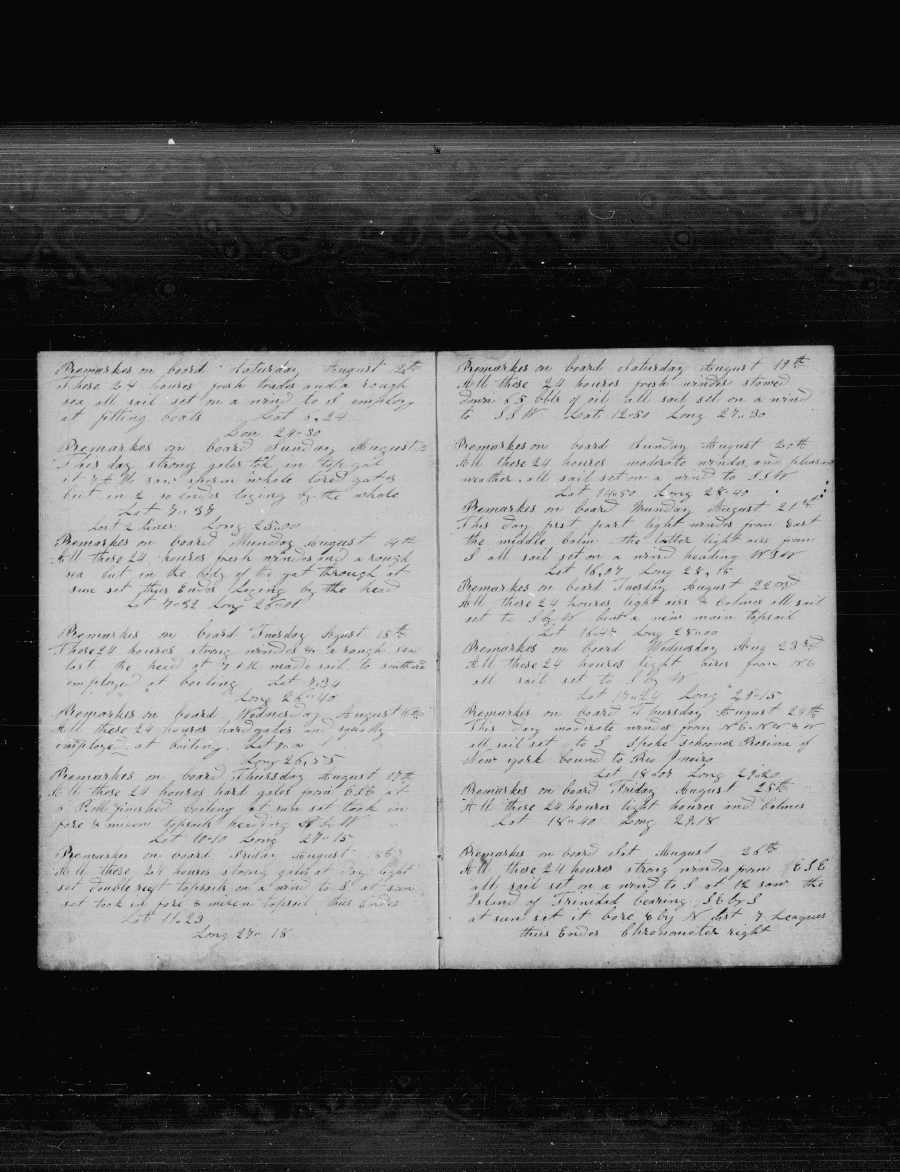 Remarkes on board Saturday August 12th
These 24 houres fresh trades and a rough
sea all sail set on a wind to S employ
at fitting boats Lat 6.24
Lon 24"30
Remarkes on board Sunday August
This day strong gales tok in top gal
at 7 A M saw sperm whale lored gat 3
but in 2 so ends laying by the whale
Lat 7"37
Lost 2 lines Long 25"00
Remarkes on board Munday August 14th
All these 24 houres fresh windes and a rough
sea but in the body of the gat through at
sun set thus Endes Laying by the head
Lat 7"32 Long 26"01
Remarkes on board Tuesday August 15th
These 24 houres strong windes & a rough sea
lost the head at 7 A M made sail to southard
employed at boiling Lat 7.34
Long 26"40
Remarkes on board Wednesday August 16th
All these 24 houres hard gales and squally
employed at boiling Lat
Long 26,55
Remarkes on board Thursday August 17th
All these 24 houres hard gales from ESE at
6 P.M finished boiling at sun set took in
fore & mizen topsails heading S by W
Lat 10"10 Long 27"15
Remarkes on board Friday August 18th
All these 24 houres strong gales at day light
set double reeft topsails on a wind to S at sun
set took in fore & mizen topsail thus Endes
Lat 11.23
Long 27" 18
Remarkes on board Saturday August 19th
All these 24 houres fresh windes stowed
down 65 bbls of oil all sail set on a wind
to S S W Lat 12"50 Long 27"30
Remarkes on board Sunday August 20th
All these 24 houres moderate windes and pleasant
weather all sail set on a wind to S S W
Lat 14"50 Long 28"40
Remarkes on board Munday August 21st
This day first part light windes from East
the middle calm the latter light airs from
S all sail set on a wind heading W S W
Lat 16,07 Long 28,15
Remarkes on board Tuesday August 22nd
All these 24 houres light airs & calmes all sail
set to S by W bent a new main topsail
Lat 16"47 Long 28"00
Remarkes on board Wednesday Aug 23rd
All these 24 houres light aires from NE
all sail set to S by W
Lat 17"24 Long 29"15
Remarkes on board Thursday August 24th
This day moderate windes from N E N W & W
all sail set to S spoke schooner Rosina of
New york bound to Rio Jneiro
Lat 18"07 Long 29"20
Remarkes on board Friday August 25th
All these 24 houres light houres and calmes
Lat 18"40 Long 29.18
Remarkes on board Sat August 26th
All these 24 houres strong windes from ESE
all sail set on a wind to S at 12 saw the
Island of Trinidad bearing SE by S
at sun set it bore E by N dist 7 Leagues
thus Endes Chronometer right